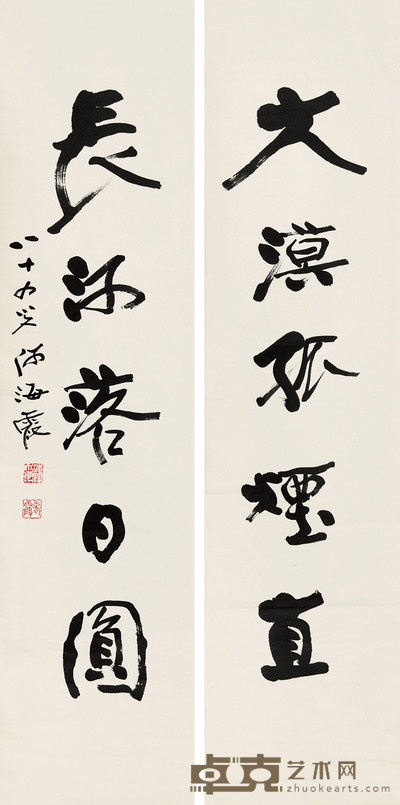 大漠孤煙直
長河落日圓
八十九叟 何海霞
卓克艺术网
zhuokearts.com